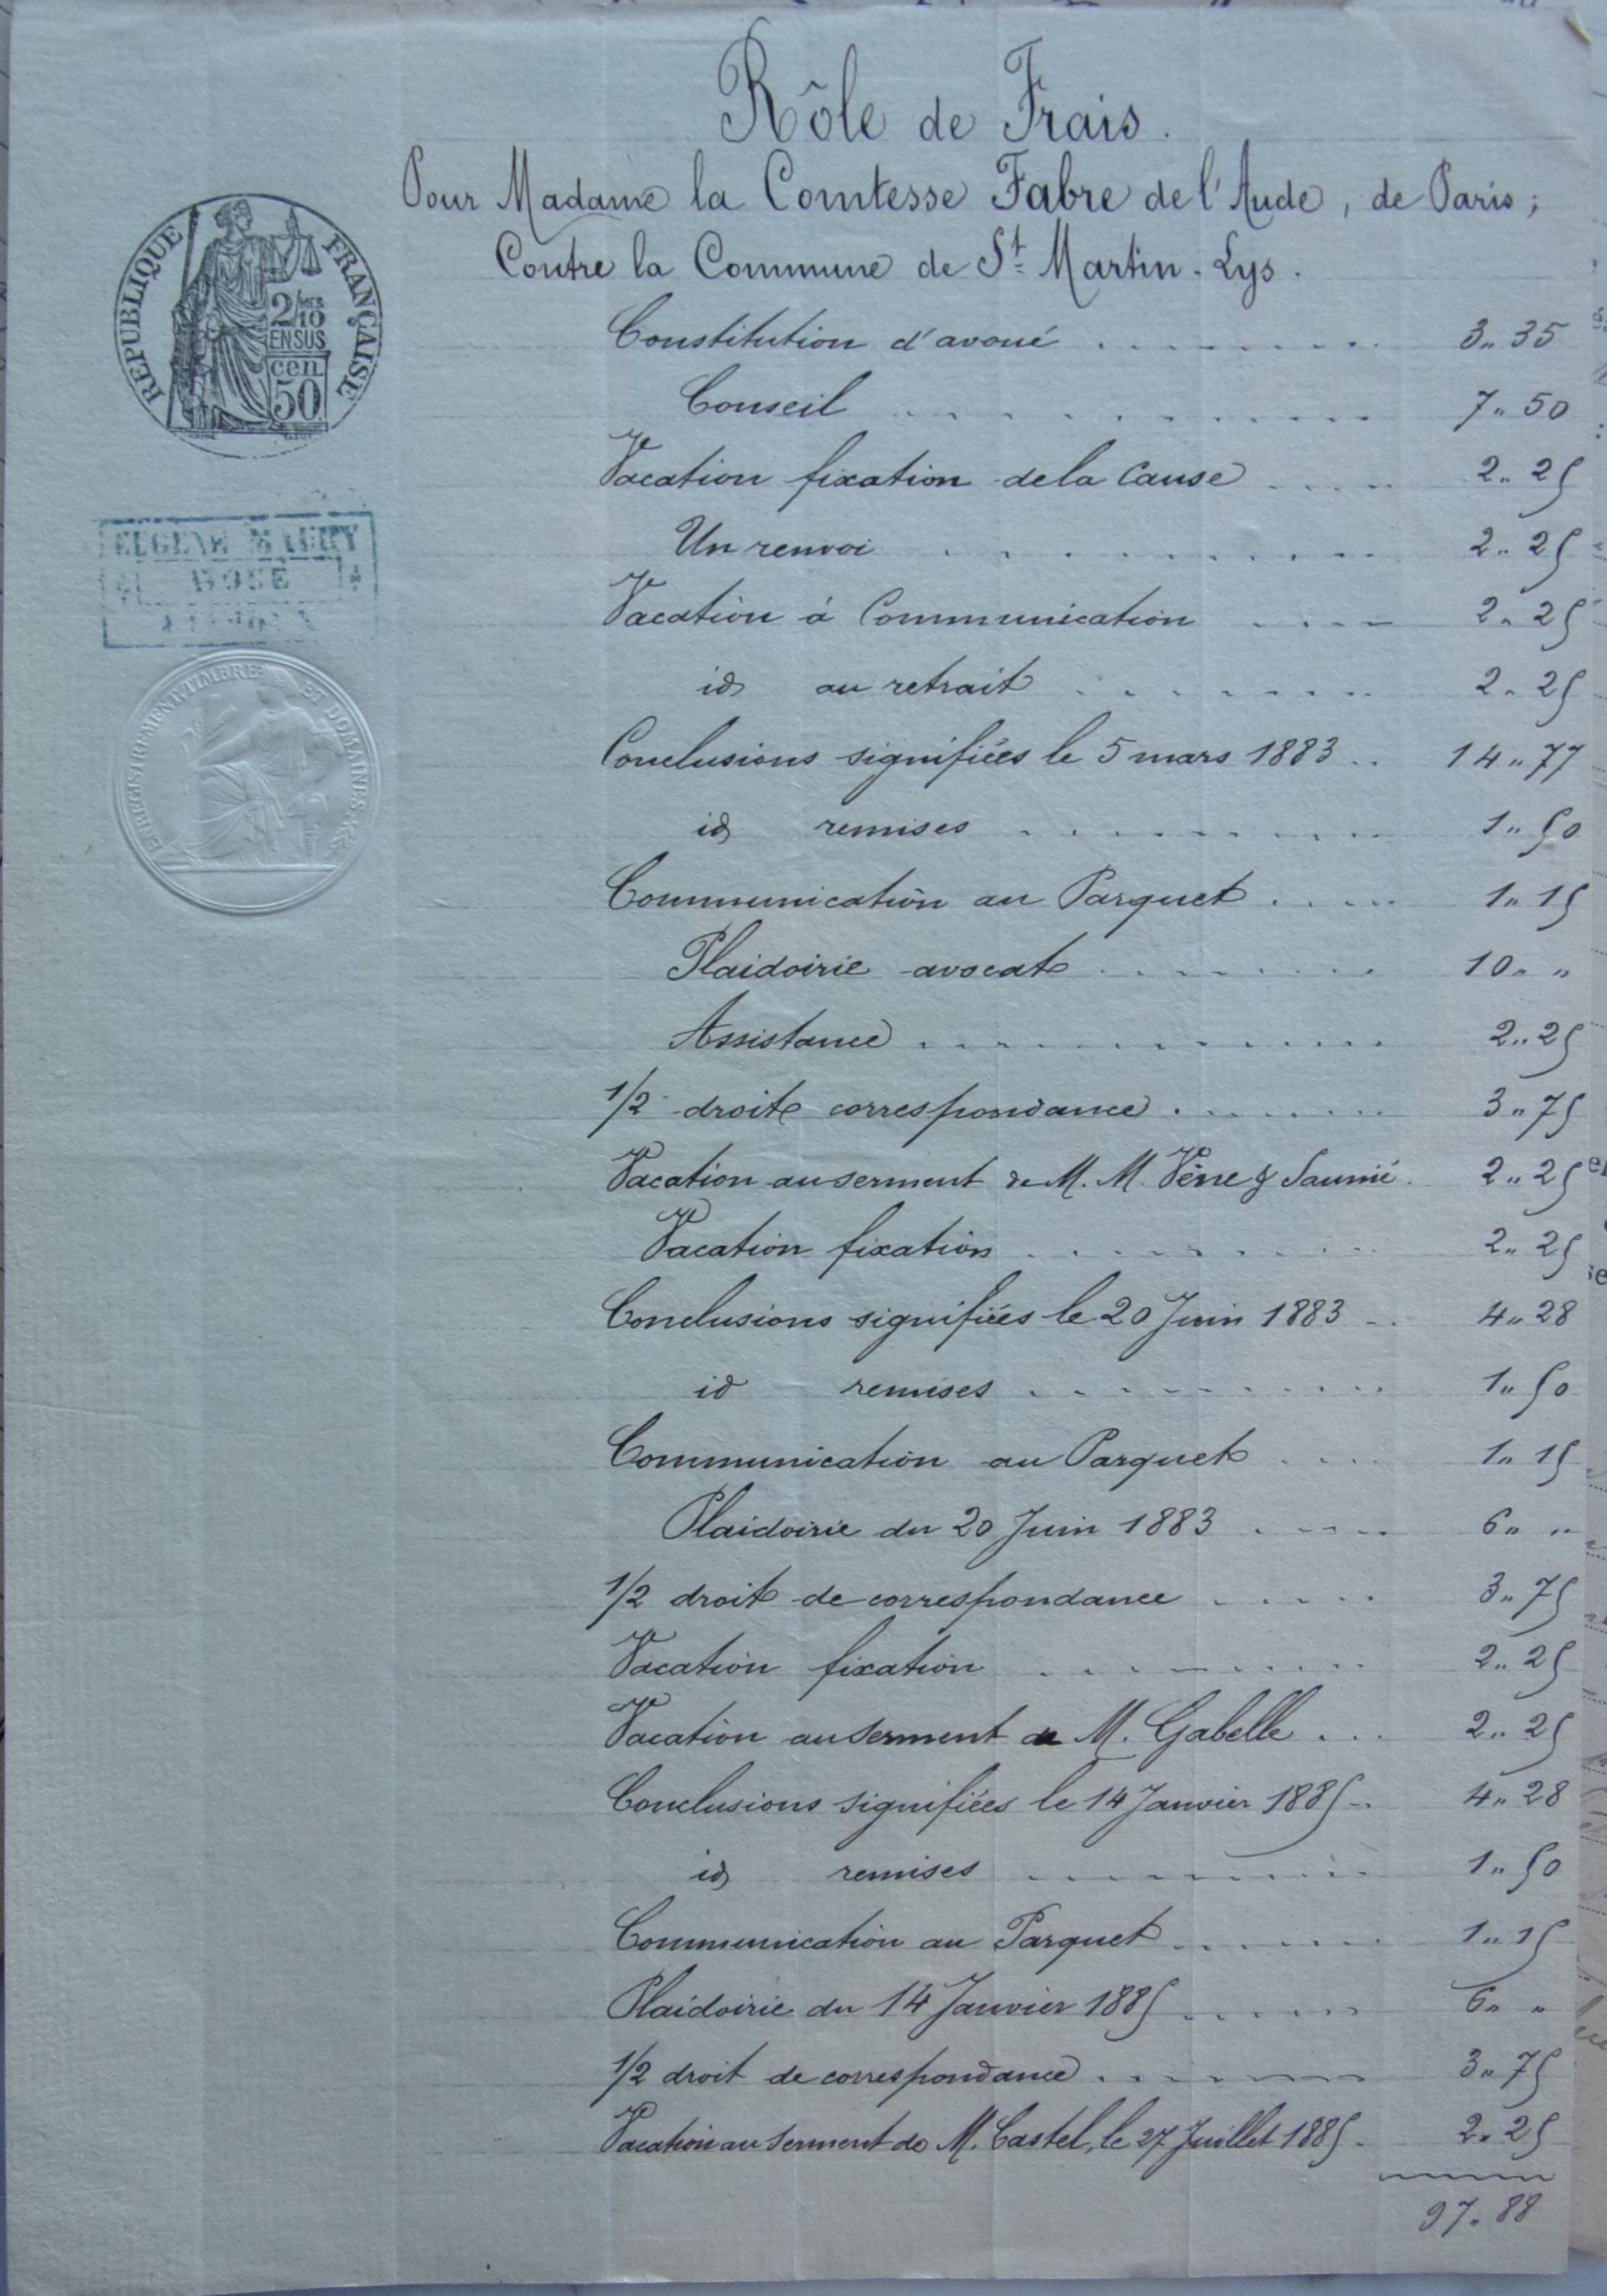 Rôle de Frais.
Pour Madame la Comtesse Fabre de l'Aude, de Paris;
Contre la Commune de St Martin-Lys.
RÉPUBLIQUE FRANÇAISE
2/10 MES
EN SUS
cen
50
Constitution d'avoué . . . . . . . . 3„ 35
Conseil . . . . . . . . . . 7„ 50
Vacation fixation de la Cause . . . . 2„ 25
EUGÈNE MAURY
AVOUÉ
Un renvoi . . . . . . . . . . 2„ 25
Vacation à Communication . . . . 2„ 25
id au retrait . . . . . . . . 2„ 25
ENREGISTREMENT, TIMBRE ET DOMAINES
Conclusions signifiées le 5 mars 1883 . . 14„ 77
id remises . . . . . . . . . 1„ 50
Communication au Parquet . . . . . 1„ 15
Plaidoirie avocat . . . . . . . . 10„ „
Assistance . . . . . . . . . . . . 2„ 25
1/2 droit correspondance . . . . . . . 3„ 75
Vacation au serment de M. M. Vène & Saunié. 2„ 25
Vacation fixation . . . . . . . . . 2„ 25
Conclusions signifiées le 20 Juin 1883 . . 4„ 28
id remises . . . . . . . . . 1„ 50
Communication au Parquet . . . . 1„ 15
Plaidoirie du 20 Juin 1883 . . . . . 6„ „
1/2 droit de correspondance . . . . . 3„ 75
Vacation fixation . . . . . . . . . 2„ 25
Vacation au serment de M. Gabelle . . . 2„ 25
Conclusions signifiées le 14 Janvier 1885 . . 4„ 28
id remises . . . . . . . . . 1„ 50
Communication au Parquet . . . . . . . 1„ 15
Plaidoirie du 14 Janvier 1885 . . . . . . 6„ „
1/2 droit de correspondance . . . . . . . 3„ 75
Vacation au serment de M. Castel, le 27 Juillet 1885. 2„ 25
97„ 88